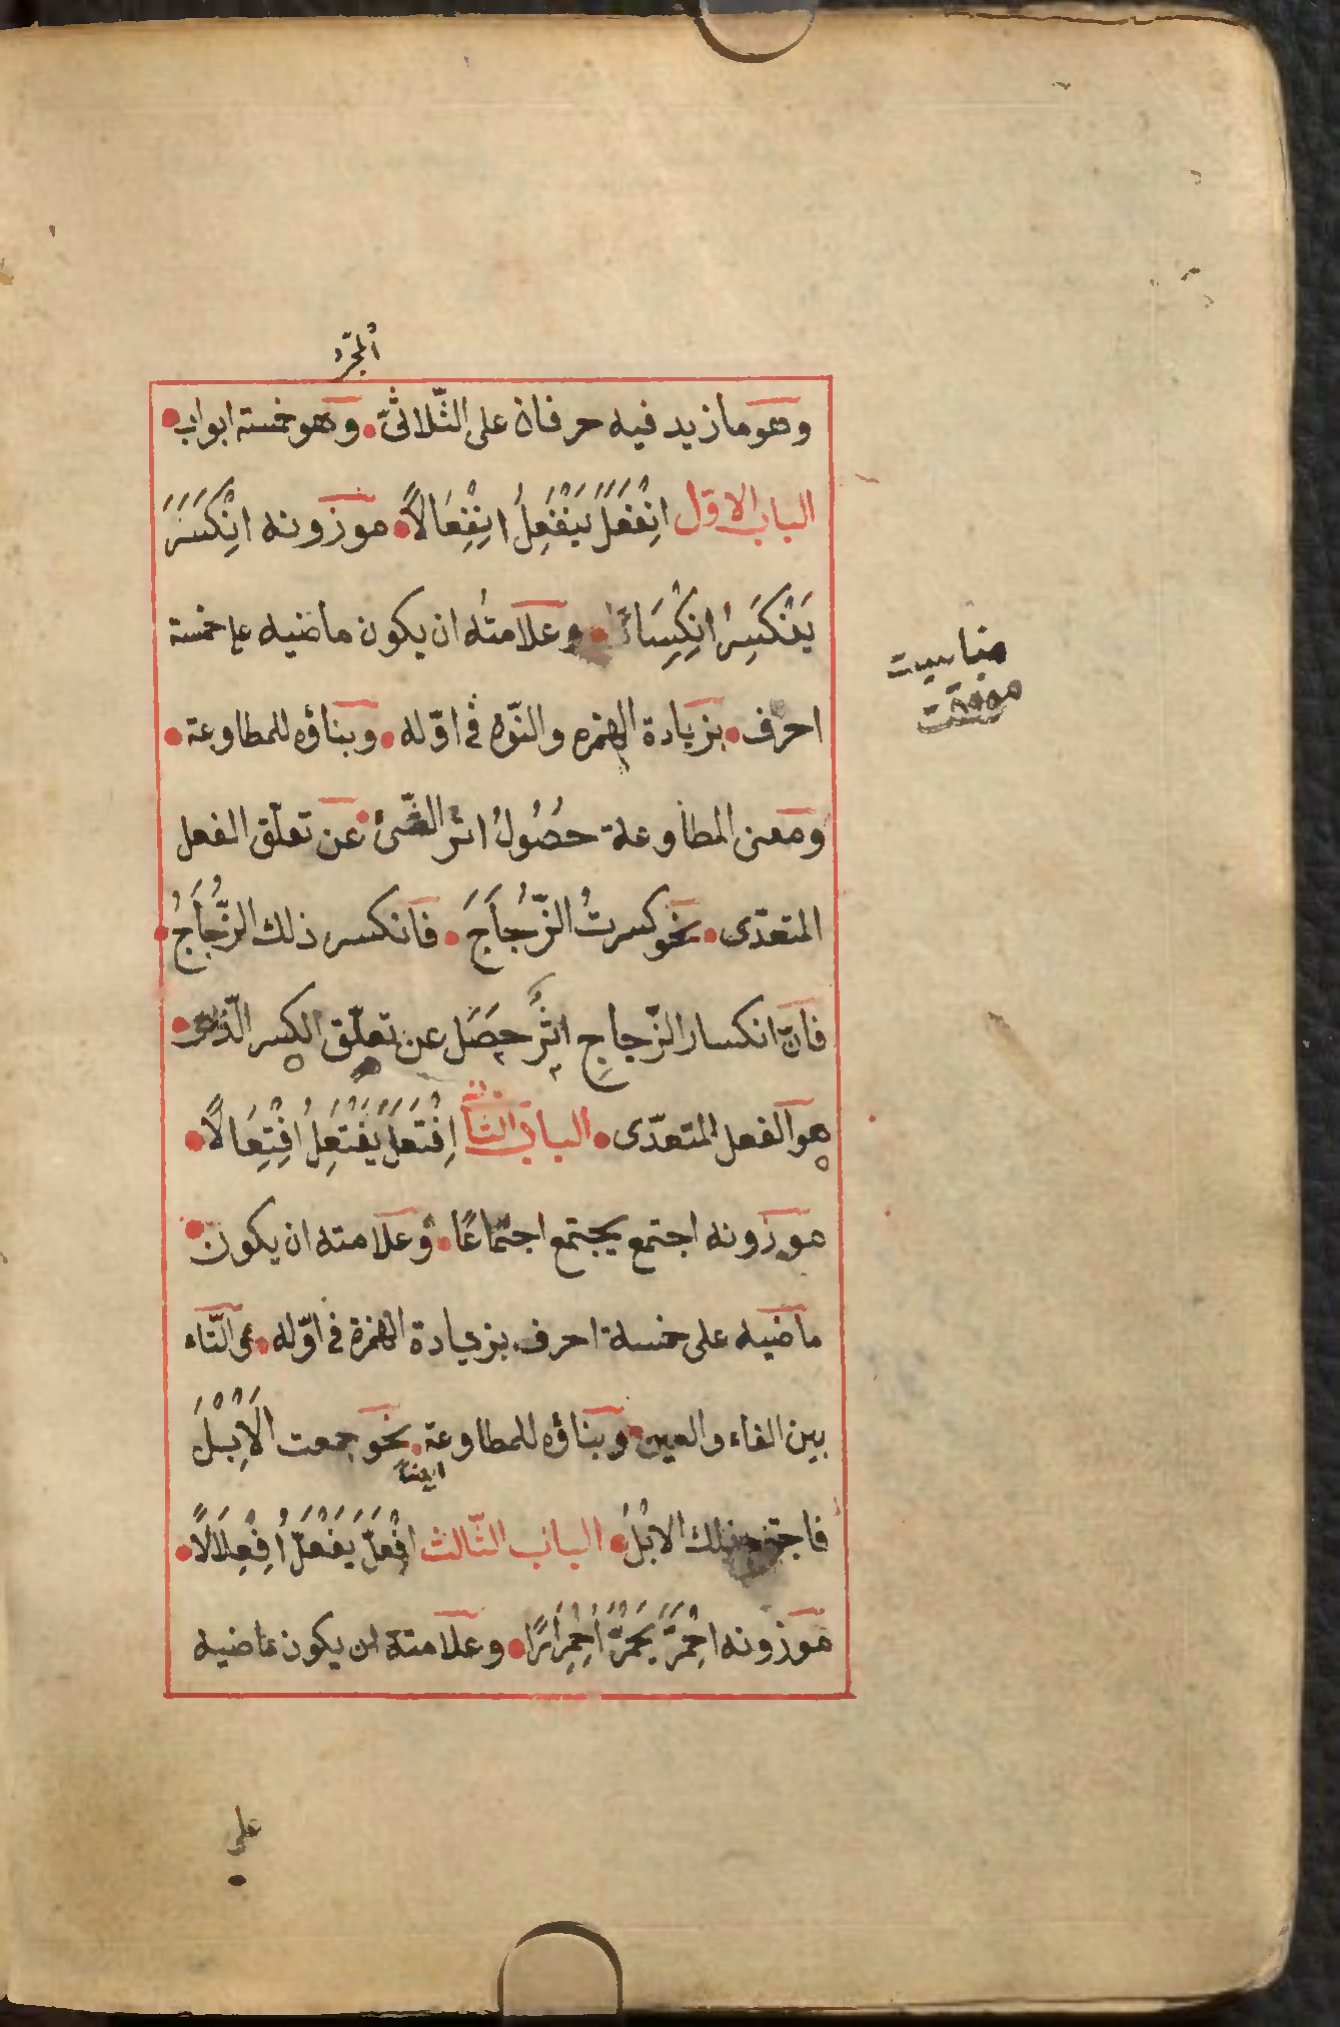 المجرد
وهو ما زيد فيه حرفان على الثّلاثىّ وهو خمسة ابواب
الباب الاوّل اِنْفَعَلَ يَنْفَعِلُ اِنْفِعَالاً موزونه اِنْكَسَرَ
يَنْكَسِرُ اِنْكِسَارًا وعلامتُه ان يكون ماضيه على خمسة
احرف بزيادة الهمزه والنّون فى اوّله وبناؤه للمطاوعة
ومعنى المطاوعة حصُولُ اثر الشّىء عن تعلّق الفعل
المتعدّى نحو كسرتُ الزُّجاَجَ فانكسر ذلك الزُّجاَجُ
فانّ انكسار الزّجاجِ اثرٌ حصَل عن تعلّق الكسر الّذى
هو الفعل المتعدّى الباب الثانى اِفْتَعَلَ يَفْتَعِلُ اِفْتِعَالاً
موزونه اجتمع يجتمع اجتماعًا وعلامته ان يكون
ماضيه على خمسة احرف بزيادة الهمزة فى اوّله والتّاء
بين الفاء والعين وبناؤه للمطاوعة نحو جمعت الاِبْلَ
ايضاً
فاجتمع ذلك الابْلُ الباب الثّالث اِفْعَلَّ يَفْعَلُّ اِفْعِلَالاً
موزونه اِحْمَرَّ يَحْمَرُّ اِحْمِرَارًا وعلامته ان يكون ماضيه
على
مناسبت